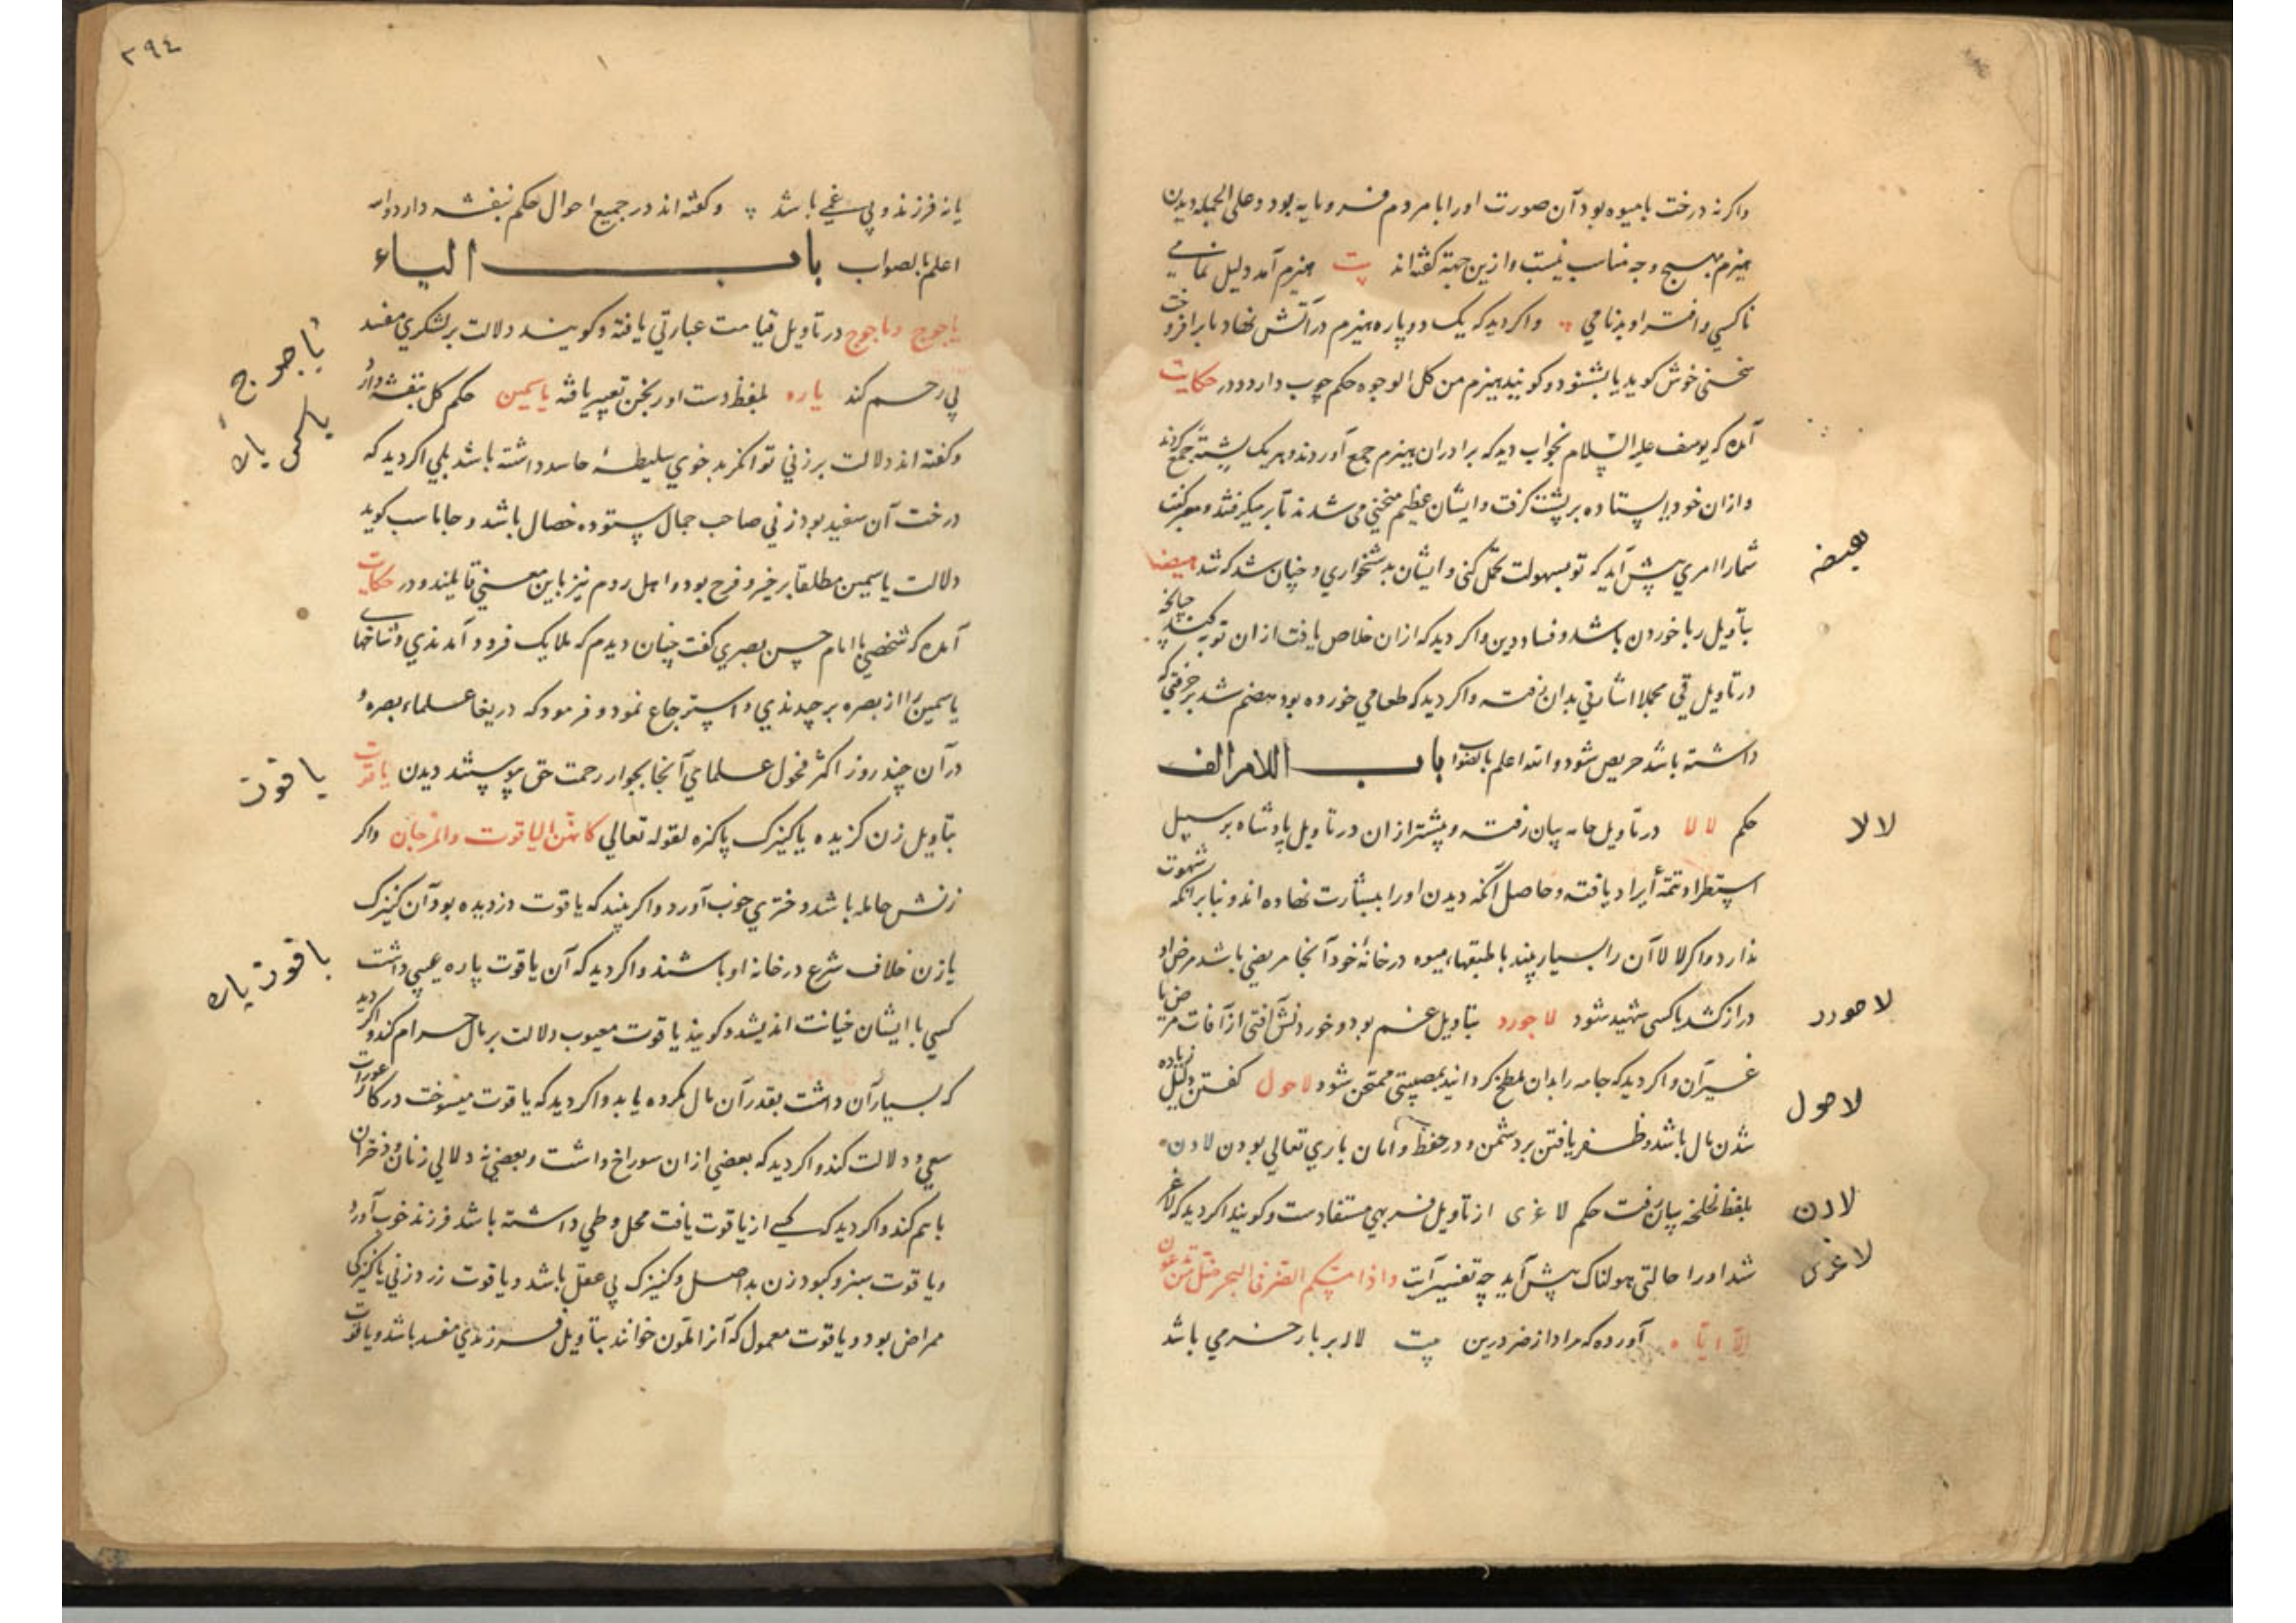 واکر نه درخت بامیوه بود آن صورت اورا بامردم فرومایه بود وعلی الجمله دیدن
هیزم بهیچ وجه مناسب نیست وازین جهة کفته اند بیت هیزم آمد دلیل نمامی
ناکسی وافترا وبدنامی واکر دید که یک دو پاره هیزم در آتش نهاد تا برافروخت
سخنی خوش کوید یا بشنود وکویند هیزم من کل الوجوه حکم چوب دارد ودر حکایت
آمده که یوسف علیه السلام بخواب دید که برادران هیزم جمع آوردند وهر یک پشتهٔ جمع کردند
وازان خود ایستاده بر پشت کرفت وایشان عظیم منحنی می شدند تا بر میکرفتند ومعبر کفت
شمارا امری پیش آید که تو بسهولت تحمل کنی وایشان بدشخواری وچنان شد که شد هیضه
هیضه
بتأویل ربا خوردن باشد وفساد دین واکر دید که ازان خلاص یافت ازان توبه کند چنانچه
در تاویل قی مجملا اشارتی بدان رفت واکر دید که طعامی خورده بود هضم شد بر حرفتی که
داشته باشد حریص شود والله اعلم بالصواب باب اللام الف
حکم لالا در تاویل جامه بیان رفت وپیشتر ازان در تاویل پادشاه بر سبیل
لالا
استطراد تتمهٔ ایراد یافته وحاصل آنکه دیدن اورا ببشارت نهاده اند وبنابر آنکه شهوت
ندارد واکر لالا آن را بسیار بیند با طبقهاء میوه در خانهٔ خود آنجا مریضی باشد مرض او
دراز کشد یا کسی شهید شود لاجورد بتاویل غم بود وخوردنش آفتی از آفات مرض یا
لاجورد
غیر آن واکر دید که جامه را بدان ملطخ کردانید بمصیبتی ممتحن شود لاحول کفتن دلیل زیاده
لاحول
شدن مال باشد وظفر یافتن بر دشمن ودر حفظ وامان باری تعالی بودن لادن
بلفظ لخلخه بیان رفت حکم لاغری از تاویل فربهی مستفادست وکویند اکر دید که لاغر
لادن
شد اورا حالتی هولناک پیش آید چه تفسیر آیت واذا مسکم الضر فی البحر ضل من تدعون
لاغری
الا ایاه آورده که مراد از ضر درین بیت لاله بر بار خرمی باشد
٣٩٤
یا نه فرزند وبی غمی باشد وکفته اند در جمیع احوال حکم بنفشه دارد والله
اعلم بالصواب باب الیاء
یاجوج وماجوج در تاویل قیامت عبارتی یافته وکویند دلالت بر لشکری مفسد
یاجوج
بی رحم کند یاره بلفظ دست اورنجن تعبیر یافته یاسمین حکم کل بنفشه دارد
یاسمن یاره
وکفته اند دلالت بر زنی توانکر بد خوی سلیطهٔ حاسد داشته باشد بلی اکر دید که
درخت آن سفید بود زنی صاحب جمال ستوده خصال باشد وجاماسب کوید
دلالت یاسمین مطلقا بر خیر وفرح بود واهل روم نیز باین معنی قایلند ودر حکایت
آمده که شخصی با امام حسن بصری کفت چنان دیدم که ملایک فرود آمدندی وشاخهای
یاسمین را از بصره برچیدندی واسترجاع نمود وفرمود که دریغا علماء بصره و
در آن چند روز اکثر فحول علمای آنجا بجوار رحمت حق پیوستند دیدن یاقوت
یاقوت
بتاویل زن کزیده یا کنیزک پاکزه لقوله تعالی کانهن الیاقوت والمرجان واکر
زنش حامله باشد دختری خوب آورد واکر بیند که یاقوت دزدیده بود آن کنیزک
یا زن خلاف شرع در خانه او باشند واکر دید که آن یاقوت پاره عیبی داشت
یاقوت پاره
کسی با ایشان خیانت اندیشد وکویند یاقوت معیوب دلالت بر مال حرام کند واکر دید
که بسیار آن داشت بقدر آن مال مکروه یابد واکر دید که یاقوت میسوخت در کار عورات
سعی ودلالت کند واکر دید که بعضی ازان سوراخ داشت وبعضی نه دلالی زنان ودختران
باهم کند واکر دید که کسی ازیاقوت یافت محل وطی داشته باشد فرزند خوب آورد
ویاقوت سبز وکبود زن بد اصل وکنیزک بی عقل باشد ویاقوت زرد زنی یا کنیزکی
ممراض بود ویاقوت معمول که آنرا ملون خوانند بتاویل فرزندی مفسد باشد ویاقوت